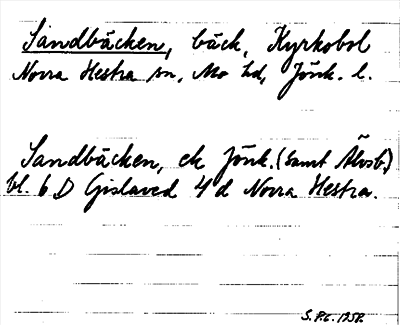 Sandbäcken, bäck, Kyrkobol
Norra Hestra sn, Mo hd, Jönk. l.
Sandbäcken, ek Jönk. (samt Älvsb.)
bl. 6 D Gislaved 4 d Norra Hestra.
S.PC. 1958.